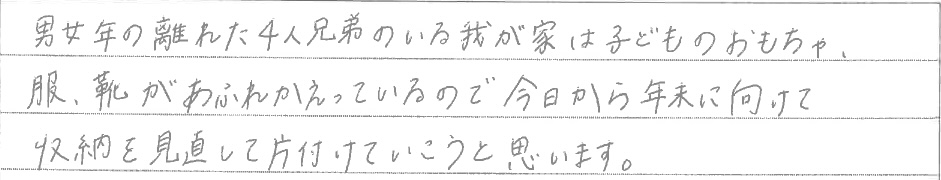 男女年の離れた4人兄弟のいる我が家は子どものおもちゃ、
服、靴があふれかえっているので今日から年末に向けて
収納を見直して片付けていこうと思います。